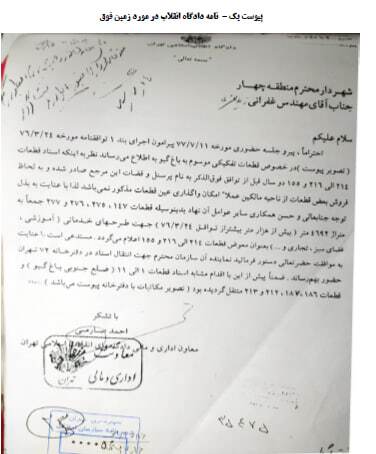 پیوست یک - نامه دادگاه انقلاب در مورد زمین فوق
دادگاه انقلاب اسلامی تهران
بسمه تعالی
شهردار محترم منطقه چهار
جناب آقای مهندس غفرانی
سلام علیکم
احتراماً، پیرو جلسه حضوری مورخه ۷۷/۷/۱۱ پیرامون اجرای بند ۱ توافقنامه مورخه ۷۶/۳/۲۴
(تصویر پیوست) در خصوص قطعات تفکیکی موسوم به باغ گیو به اطلاع می‌رساند. نظر به اینکه اسناد قطعات
۲۱۴ الی ۲۱۶ و ۱۵۵ در سال قبل از توافق فوق‌الذکر به نام پرسنل و قضات این مرجع صادر شده و به لحاظ
فروش بعض قطعات از ناحیه مالکین عملاً امکان واگذاری عین قطعات مذکور نمی‌باشد لذا با عنایت به بذل
توجه جنابعالی و حسن همکاری سایر عوامل آن نهاد بدینوسیله قطعات ۱۴۷، ۲۷۵، ۲۷۶ و ۲۷۷ جمعاً به
متراژ ۴۶۹۲ متر (بیش از هزار متر بیشتر از توافق ۷۶/۳/۲۴) جهت طرح‌های خدماتی (آموزشی،
فضای سبز، تجاری و ...) بعنوان معوض قطعات ۲۱۴ الی ۲۱۶ و ۱۵۵ اعلام می‌گردد. مستدعی است با عنایت
به موافقت حضرتعالی دستور فرمائید نماینده آن سازمان محترم جهت انتقال اسناد در دفترخانه ۷۲ تهران
حضور بهم رساند. ضمناً پیش از این با اقدام مشابه اسناد قطعات ۱ الی ۱۱ (ضلع جنوبی باغ گیو) و
قطعات ۱۸۶، ۱۸۷، ۲۱۲ و ۲۱۳ منتقل گردیده بود (تصویر مکاتبات با دفترخانه پیوست می‌باشد) ....
با تشکر
احمد
معاون اداری و دادگاه‌های انقلاب اسلامی تهران
معاونت
اداری و مالی
تهران
۳۵۴۷۵